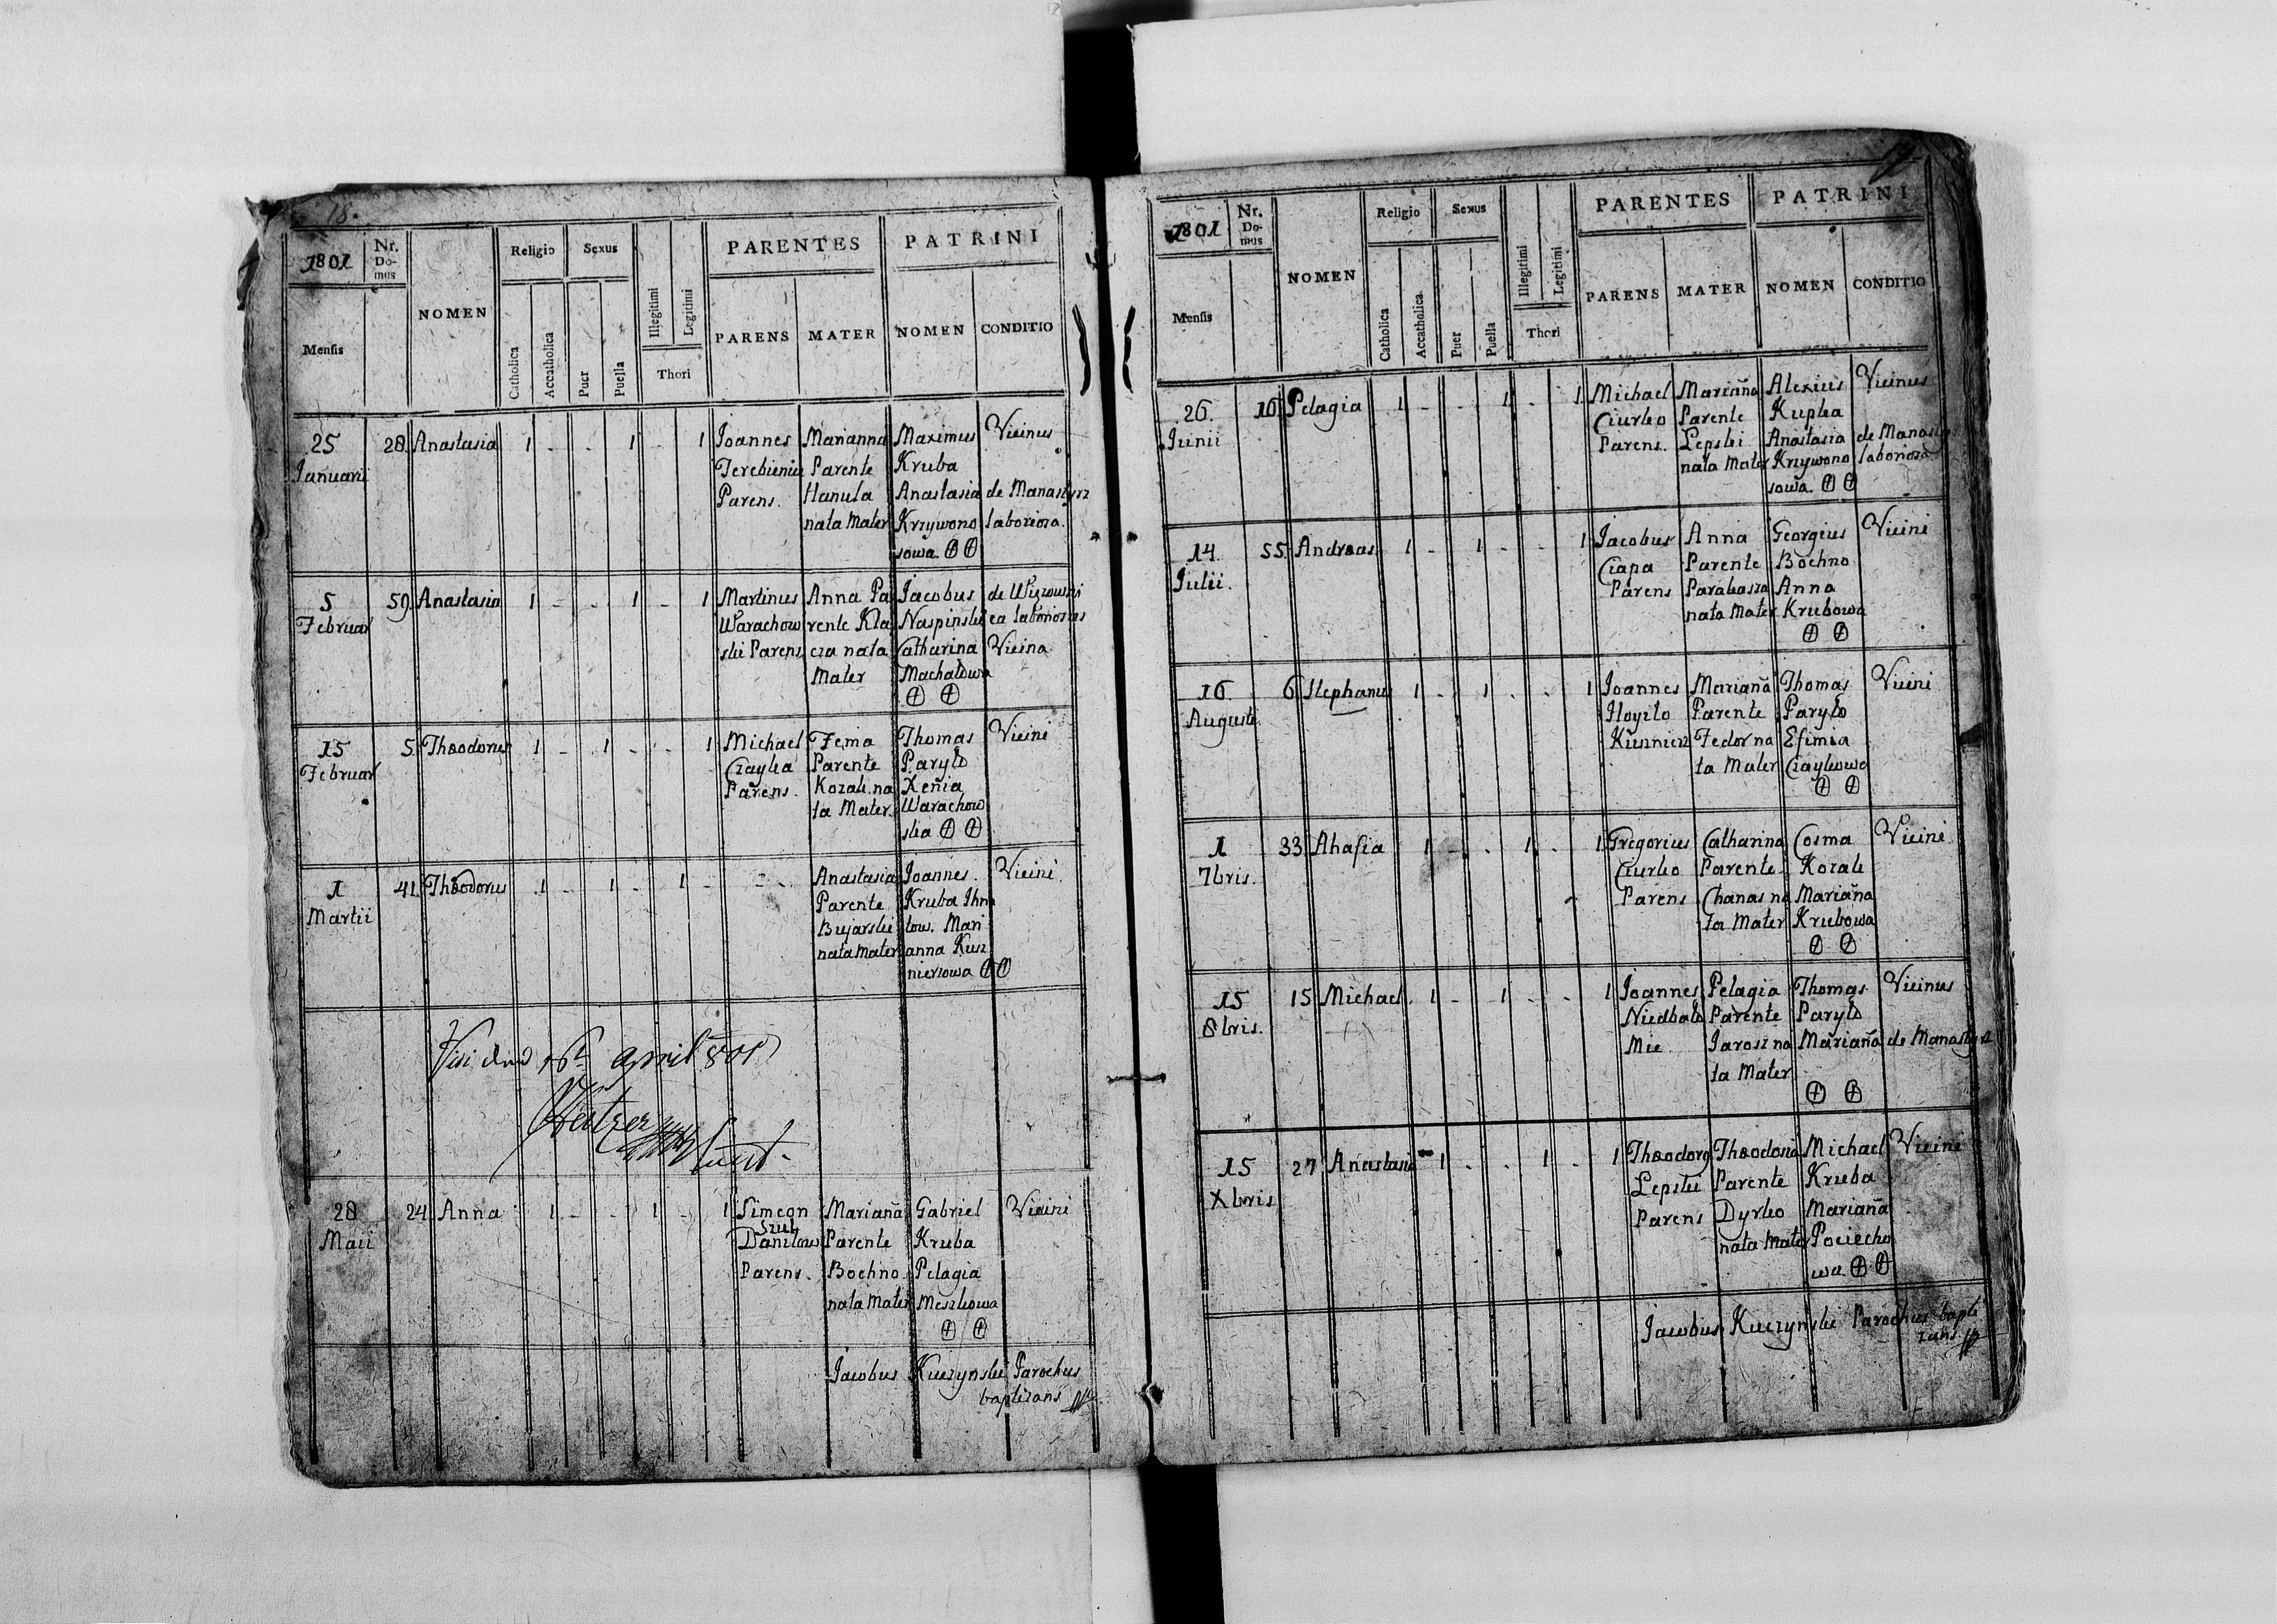 18.
1801
Nr. Domus
NOMEN
Religio
Sexus
Illegitimi
Legitimi
PARENTES
PATRINI
Mensis
Catholica
Accatholica
Puer
Puella
Thori
PARENS
MATER
NOMEN
CONDITIO
25 28. Anastasia 1 - - 1 - 1 Joannes Marianna Maximus Vicinus
Januarii Parente Kruba
Parens. Hanula Anastasia de Manastyrz
nata Mater Krzywono laboriosa.
sowa.
5 59. Anastasia 1 - - 1 - 1 Martinus Anna Pa Jacobus
Februar Warachow rente Kla Naspinski
ski Parens cza nata Catharina Vicina
Mater Machałowa
15 5. Theodorus 1 - 1 - - 1 Michael Fema Thomas Vicini
Februar Czayka Parente Paryło
Parens. Kozak na Xenia
ta Mater. Warachow
ska
1 41. Theodorus 1 - 1 - 1 - - - Anastasia Joannes. Vicini.
Martii Parente Kruba
Bujarski tow. Mari
nata Mater anna Kusz
nierzowa
april 801
28 24. Anna 1 - - 1 - 1 Simeon Marianna Gabriel Vicini
Szul
Maii Daniłow Parente Kruba
Parens. Bochno Pelagia
nata Mater Meszkowa
Jacobus Kuczynski Parochus
baptizans
1801
Nr. Domus
NOMEN
Religio
Sexus
Illegitimi
Legitimi
PARENTES
PATRINI
Mensis
Catholica
Accatholica
Puer
Puella
Thori
PARENS
MATER
NOMEN
CONDITIO
26. 16. Pelagia 1 - - 1 - 1 Michael Mariana Alexius Vicinus
Junii Ciurko Parente Kupka
Parens. Lepski Anastasia de Manasty
nata Mater Krzywono laboriosa.
sowa.
14. 55. Andreas 1 - 1 - - 1 Jacobus Anna Georgius Vicini
Julii. Czapa Parente Bochno
Parens Parabasza Anna
nata Mater Krubowa
16. 6. Stephanus 1 - 1 - - 1 Joannes Mariana Thomas Vicini
Augusti Parente Paryło
Kusznierz Fedor na Efimia
ta Mater Czaykowa
1 33. Ahafia 1 - - 1 - 1 Gregorius Catharina Cosma Vicini
7bris. Ciurko Parente Kozak
Parens Chanas na Mariana
ta Mater Krubowa
15 15 Michael. 1 - 1 - - 1 Joannes Pelagia Thomas Vicinus
8bris. Niedbało Parente Paryło
Jarosz na Mariana de Manastyrz
ta Mater
15 27 Anastasia 1 - - 1 - 1 Theodorg Theodosia Michael Vicini
Xbris Lepski Parente Kruba
Parens Dyrko Mariana
nata Mater Pociecho
wa.
Jacobus Kuczynski Parochus bapti
zans